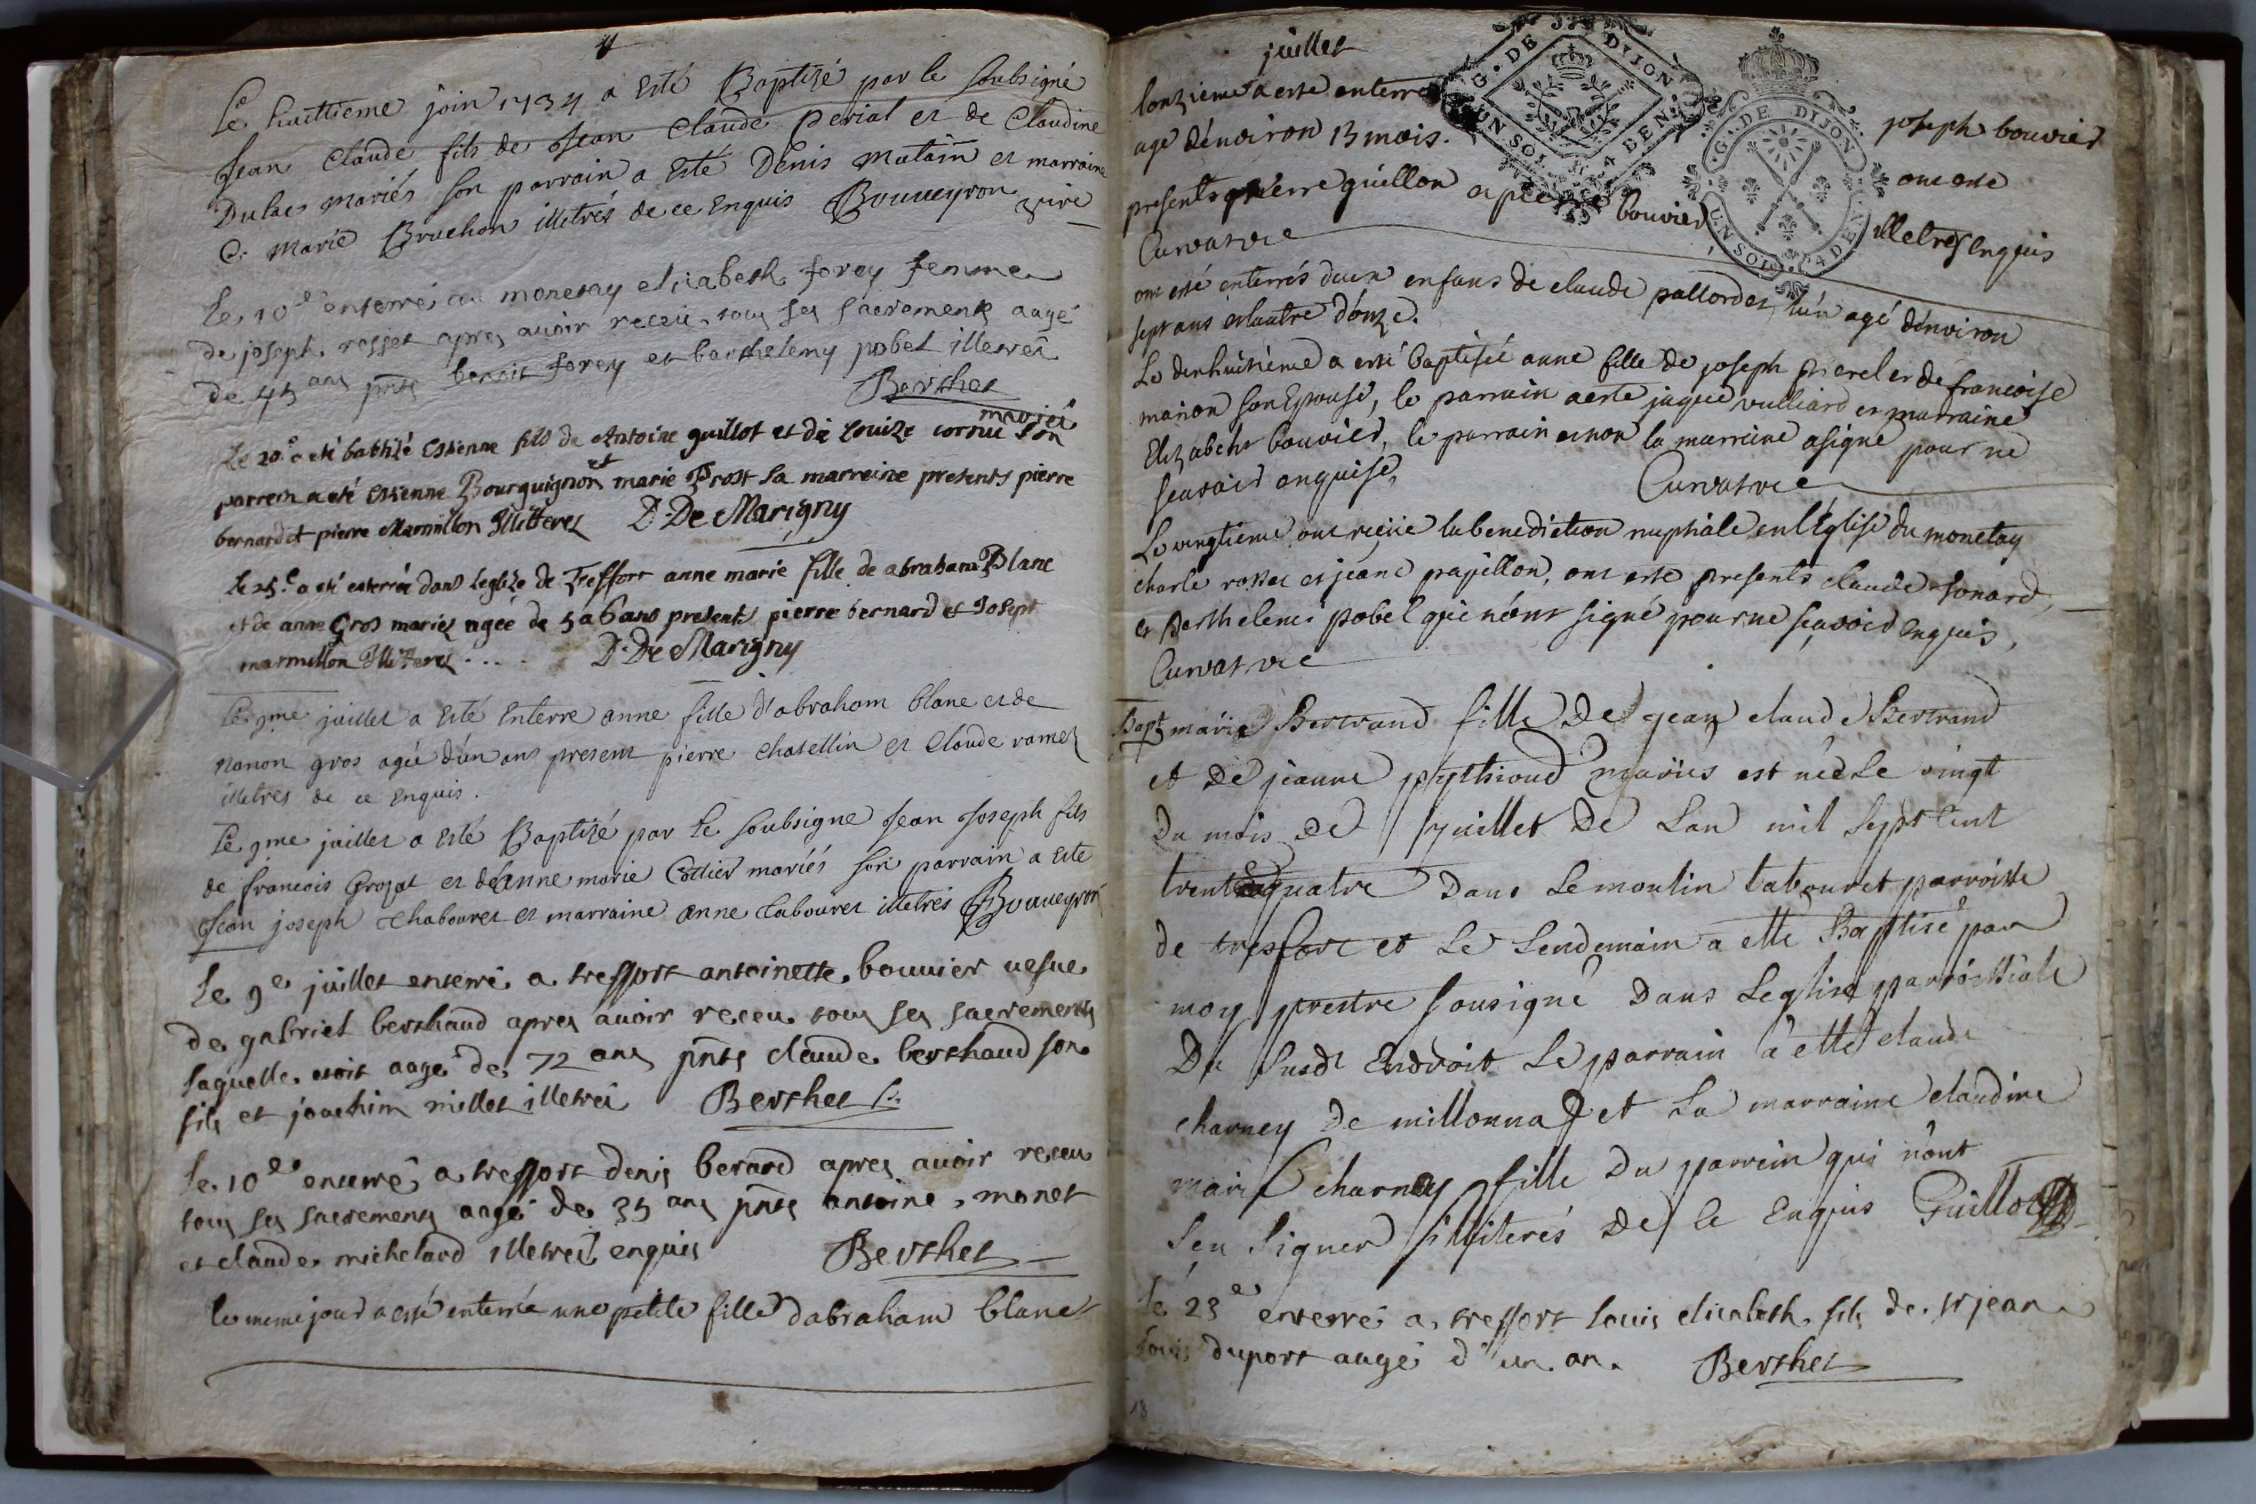 Le huittieme join 1734 a Esté Baptizé par le soubsigné
Jean Claude fils de Jean Claude periat et de Claudine
Dulac mariés son parrain a Esté Denis matain et marraine
C. marie Bruchon illetrés de ce Enquis Bouueyron vire
Le 10e enterré au monetay elizabeth forey femme
de joseph rosset apres auoir receu tous ses sacrements aagé
de 45 ans pnts benoit forey et barthelemy pobel illetrés
Berthet
mariés
Le 20e a eté batizé estienne fils de Antoine guillot et de Louize cornu son
parrein a eté estienne Bourguignon et marie Prost sa marreine presents pierre
bernard et pierre Marmillon Illitterez D. De Marigny
Le 25e a eté enterrée dans leglize de Treffort anne marie fille de abraham Blanc
et de anne Gros mariez agée de 5 a 6 ans presents pierre bernard et Josept
marmillon Illitterez .... D. De Marigny
Le 9me juillet a Esté Enterre anne fille d'abraham blanc et de
nanon gros agée d'un ans present pierre chatellin et Claude ramel
illetres de ce Enquis.
Le 9me juillet a Esté Baptizé par le soubsigne Jean Joseph fils
de francois Grozat et de anne marie Cottier mariés son parrain a Este
Jean joseph Chabouret et marraine anne Tabouret illetrés Bouueyron
Le 9e juillet enterré a treffort antoinette bouuier uefue
de gabriel berthaud apres auoir receu tous ses sacrements
laquelle etoit aagé de 72 ans pnts claude berthaud son
fils et joachim millet illetrés Berthet
Le 10e enterré a treffort denis berard apres auoir receu
tous ses sacrements aagé de 35 ans pnts antoine monet
et claude michelard illetrés enquis Berthet
le meme jour a esté enterrée une petite fille dabraham blanc
juillet
lonzieme a este enterré joseph bouvier
agé dénviron 13 mois. ont esté
presents pierre guillon et pierre bouvier illetrés enquis
Curvatvre
G. DE DIJON
UN SOL 4 DEN.
G. DE DIJON
UN SOL 4 DEN.
ont esté enterrés deux enfans de claude pallordet, lún agé dénviron
sept ans et lautre dónze.
Le dixhuitième a esté baptisée anne fille de joseph et de francoise
manon son Epouse, le parrain a esté jaque vulliard et marraine
Elizabeht bouvier, le parrain et non la marraine a signé pour ne
scavoir enquise, Curvatvre
Le vingtieme ont reçüe la benediction nuphiale en lÉglise du monetay
charle rosset et jeane papillon, ont esté presents claude
et Barthelemi pobel qui nónt signé pour ne sçavoir Enquis,
Curvatvre
Bapt marie Bertrand fille De jean claude Bertrand
et De jeanne pythioud mariés est née Le vingt
Du mois De juillet De Lan mil Sept cent
trente quatre Dans Le moulin tabouret parroisse
de tresfort et Le Lendemain a etté Baptisé par
moy prestre Sousigné Dans Leglise parroissiale
Du Susdt Endroit Le parrain a etté claude
charney De millonna et La marraine claudine
marie charnay fille Du parrein qui nont
Seu Signer illiterés De Ce Enquis Guillot
Le 23e enterré a treffort louis elizabeth fils de sr jean
louis duport aagé d'un an. Berthet
18